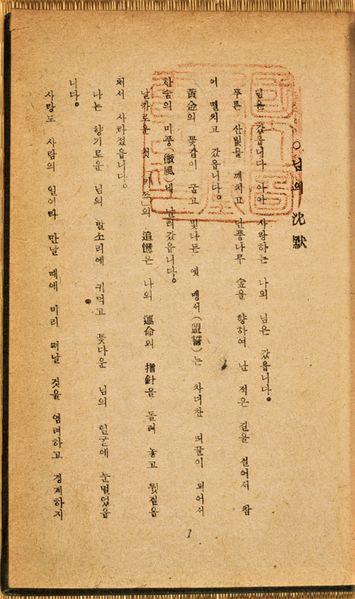 님의 沈默
님은 갔읍니다 아아 사랑하는 나의 님은 갔읍니다。
푸른 산빛을 깨치고 단풍나무 숲을 향하여 난 적은 길을 걸어서 참
어 떨치고 갔읍니다。
黃金의 꽃같이 굳고 빛나든 옛 맹서(盟誓)는 차디찬 띠끌이 되어서
한숨의 미풍(微風)에 날러갔읍니다。
날카로운 첫 의 追憶은 나의 運命의 指針을 돌려 놓고 뒷걸음
쳐서 사라졌읍니다。
나는 향기로운 님의 말소리에 귀먹고 꽃다운 님의 얼굴에 눈멀었읍
니다。
사랑도 사람의 일이라 만날 때에 미리 떠날 것을 염려하고 경계하지
1